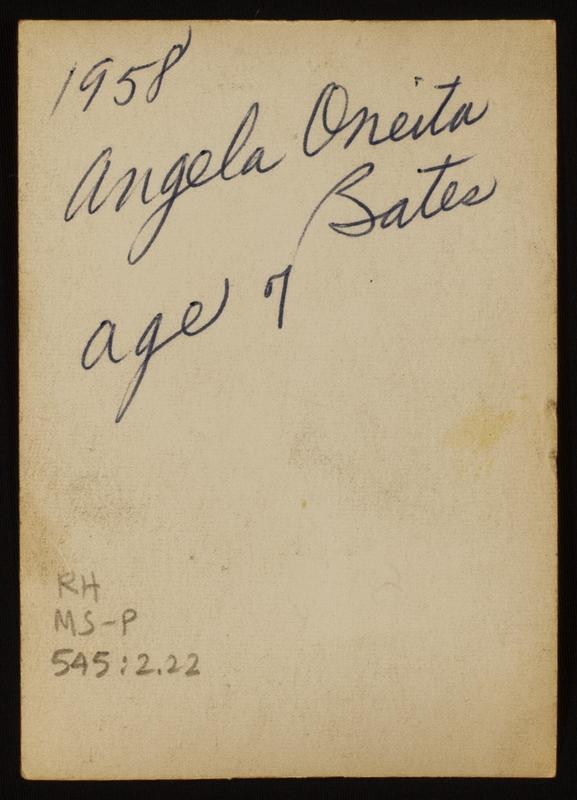 1958
Angela Oneita
Bates
age 7
RH
MS-P
545:2.22